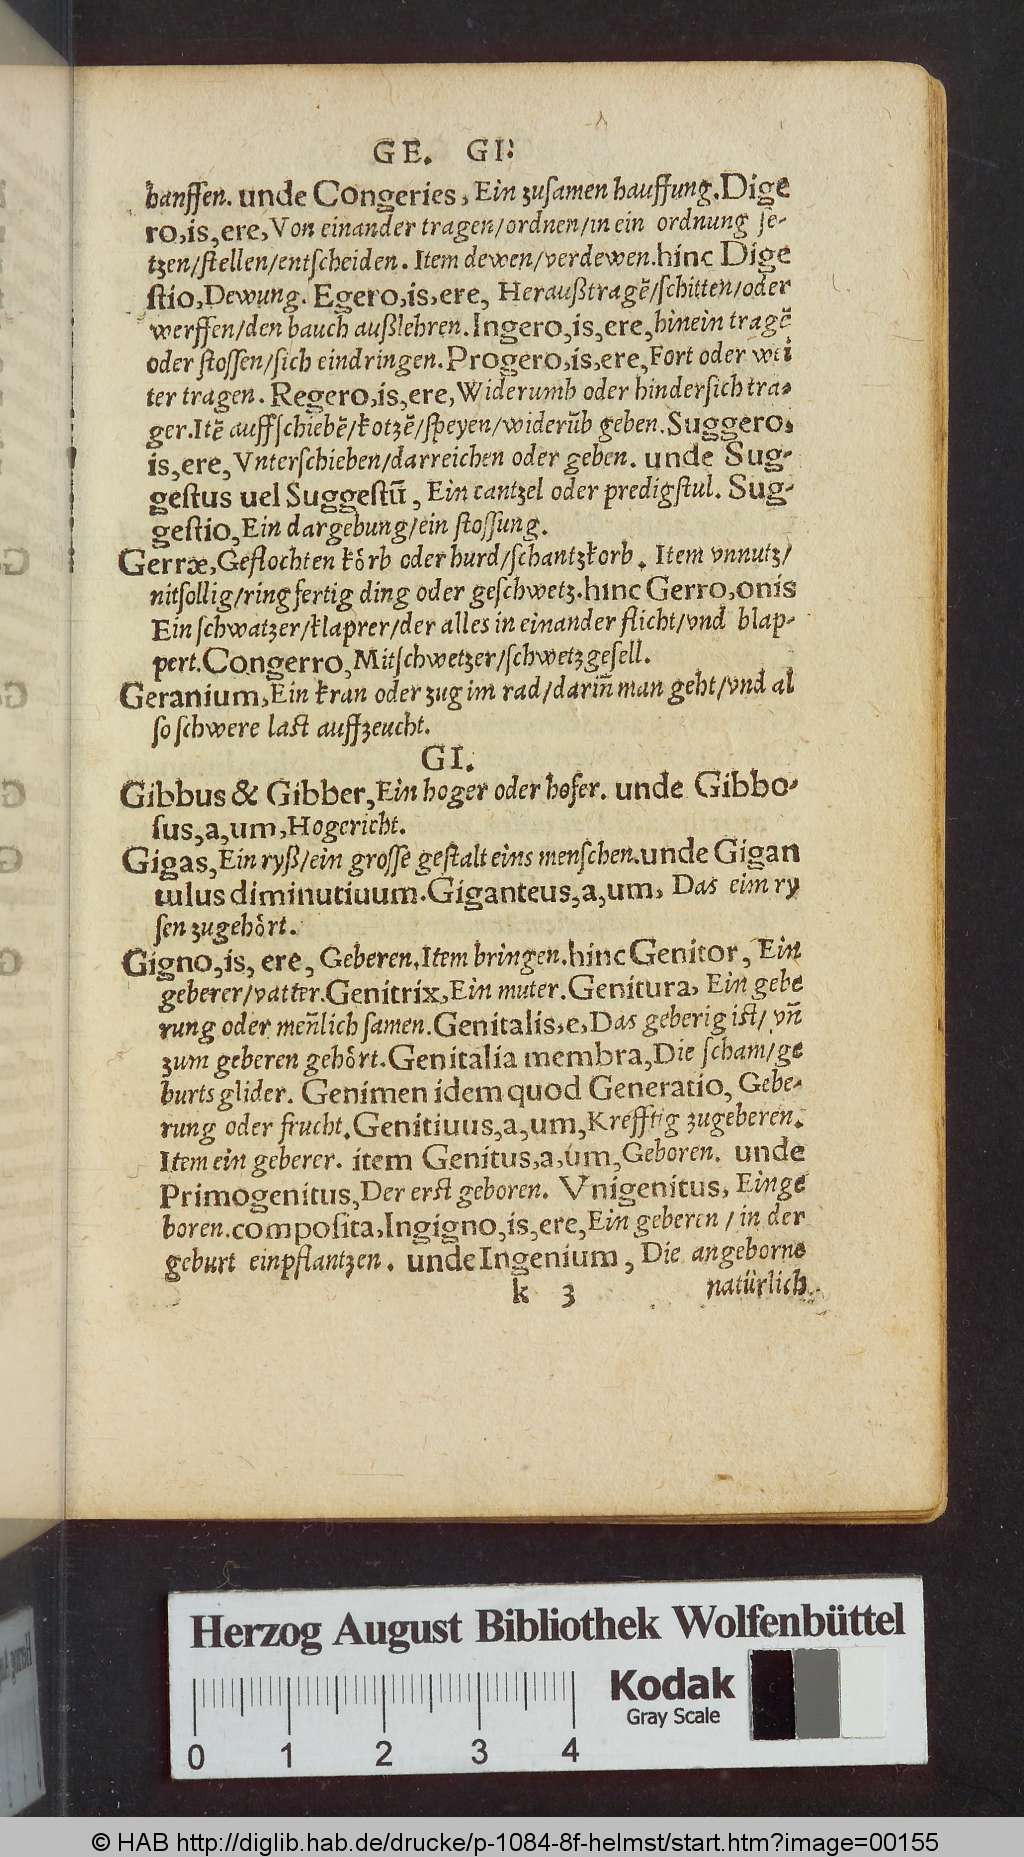 GE. GI:
hauffen. unde Congeries, Ein zusamen hauffung. Dige
ro,is,ere, Von einander tragen/ordnen/in ein ordnung se-
tzen/stellen/entscheiden. Item dewen/verdewen. hinc Dige
stio, Dewung. Egero,is,ere, Heraußtragẽ/schitten/oder
werffen/den bauch außlehren. Ingero,is,ere, hinein tragẽ
oder stossen/sich eindringen. Progero,is,ere, Fort oder wei
ter tragen. Regero,is,ere, Widerumb oder hindersich tra-
gen. Itẽ auffschiebẽ/kotzẽ/speyen/widerũb geben. Suggero,
is,ere, Vnterschieben/darreichen oder geben. unde Sug-
gestus uel Suggestũ, Ein cantzel oder predigstul. Sug-
gestio, Ein dargebung/ein stossung.
Gerræ, Geflochten kôrb oder hurd/schantzkorb. Item vnnutz/
nitsollig/ringfertig ding oder geschwetz. hinc Gerro,onis
Ein schwatzer/klaprer/der alles in einander flicht/vnd blap-
pert. Congerro, Mitschwetzer/schwetzgesell.
Geranium, Ein kran oder zug im rad/dariñ man geht/vnd al
so schwere last auffzeucht.
GI.
Gibbus & Gibber, Ein hoger oder hofer. unde Gibbo-
sus,a,um, Hogericht.
Gigas, Ein ryß/ein grosse gestalt eins menschen. unde Gigan
tulus diminutiuum. Giganteus,a,um, Das eim ry
sen zugehôrt.
Gigno,is, ere, Geberen. Item bringen. hinc Genitor, Ein
geberer/vatter. Genitrix, Ein muter. Genitura, Ein gebe
rung oder meñlich samen. Genitalis,e, Das geberig ist/ vñ
zum geberen gehôrt. Genitalia membra, Die scham/ge
burts glider. Genimen idem quod Generatio, Gebe-
rung oder frucht. Genitiuus,a,um, Krefftig zugeberen.
Item ein geberer. item Genitus,a,um, Geboren. unde
Primogenitus, Der erst geboren. Vnigenitus, Einge
boren. composita, Ingigno,is,ere, Ein geberen / in der
geburt einpflantzen. unde Ingenium, Die angeborne
k 3 natürlich
Herzog August Bibliothek Wolfenbüttel
Kodak
Gray Scale
0 1 2 3 4
© HAB http://diglib.hab.de/drucke/p-1084-8f-helmst/start.htm?image=00155